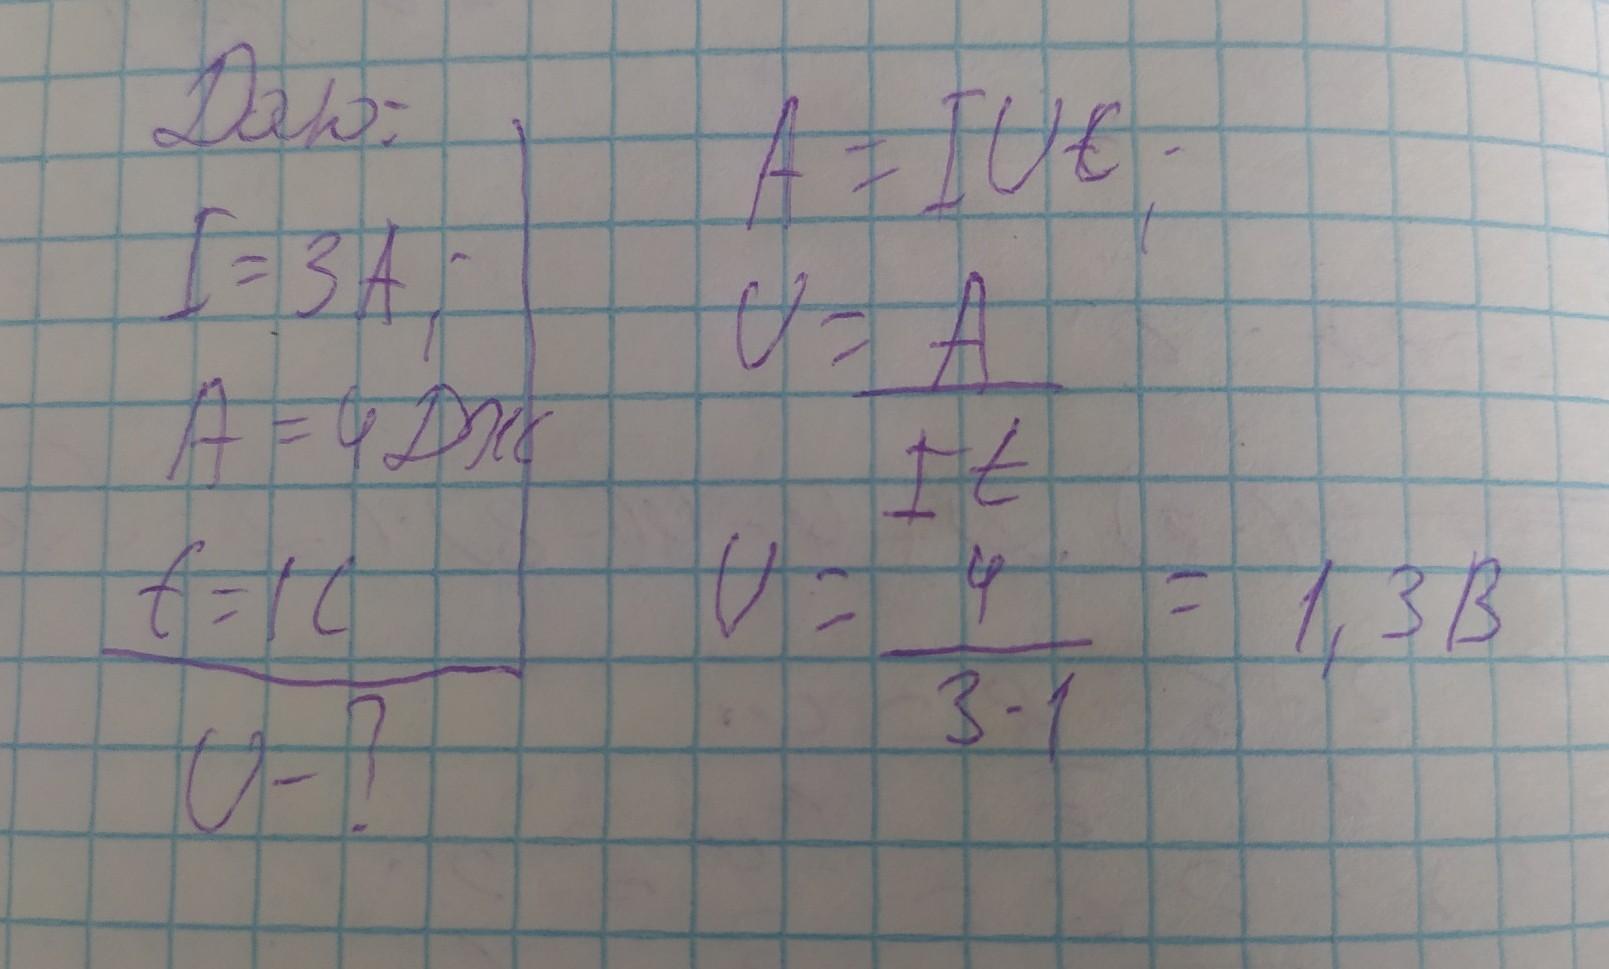 Дано:
I = 3 А;
A = 4 Дж
t = 1 с
U - ?
A = IUt;
U = A
I t
U = 4 = 1,3 В
3 · 1